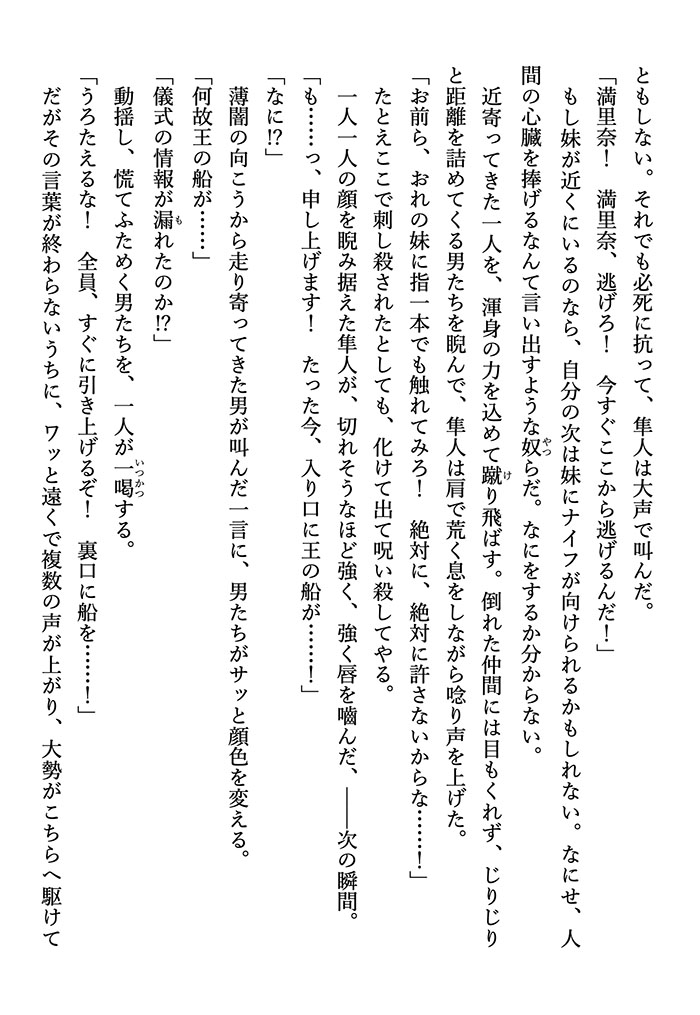 ともしない。それでも必死に抗って、隼人は大声で叫んだ。
「満里奈！　満里奈、逃げろ！　今すぐここから逃げるんだ！」
　もし妹が近くにいるのなら、自分の次は妹にナイフが向けられるかもしれない。なにせ、人
間の心臓を捧げるなんて言い出すような奴らだ。なにをするか分からない。
　近寄ってきた一人を、渾身の力を込めて蹴り飛ばす。倒れた仲間には目もくれず、じりじり
と距離を詰めてくる男たちを睨んで、隼人は肩で荒く息をしながら唸り声を上げた。
「お前ら、おれの妹に指一本でも触れてみろ！　絶対に、絶対に許さないからな……！」
　たとえここで刺し殺されたとしても、化けて出て呪い殺してやる。
　一人一人の顔を睨み据えた隼人が、切れそうなほど強く、強く唇を嚙んだ、――次の瞬間。
「も……っ、申し上げます！　たった今、入り口に王の船が……！」
「なに!?」
　薄闇の向こうから走り寄ってきた男が叫んだ一言に、男たちがサッと顔色を変える。
「何故王の船が……」
「儀式の情報が漏れたのか!?」
　動揺し、慌てふためく男たちを、一人が一喝する。
「うろたえるな！　全員、すぐに引き上げるぞ！　裏口に船を……！」
　だがその言葉が終わらないうちに、ワッと遠くで複数の声が上がり、大勢がこちらへ駆けて